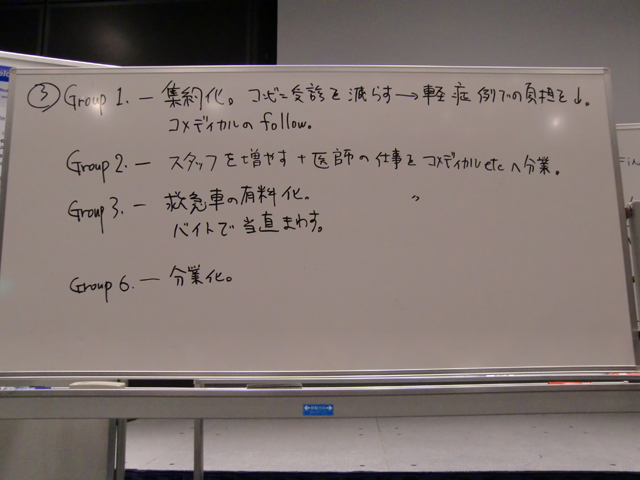 ③ Group 1. — 集約化。コンビニ受診を減らす→軽症例での負担を↓。
コメディカルの follow.
Group 2. — スタッフを増やす + 医師の仕事を コメディカル etc へ分業。
Group 3. — 救急車の有料化。 〃
バイトで当直まわす。
Group 6. — 分業化。